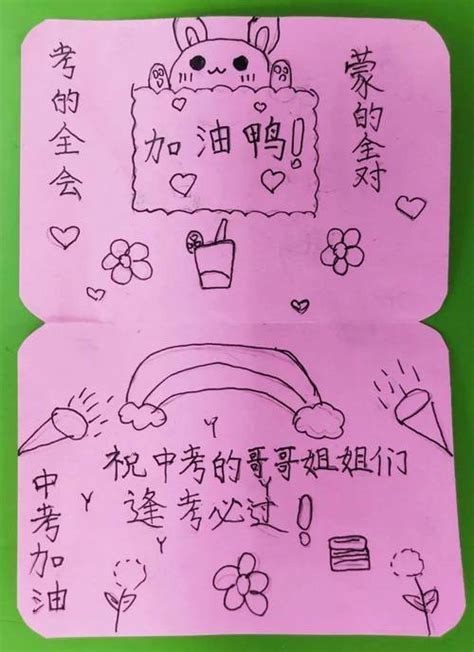 考的全会
加油鸭!
蒙的全对
祝中考的哥哥姐姐们
逢考必过!
中考加油